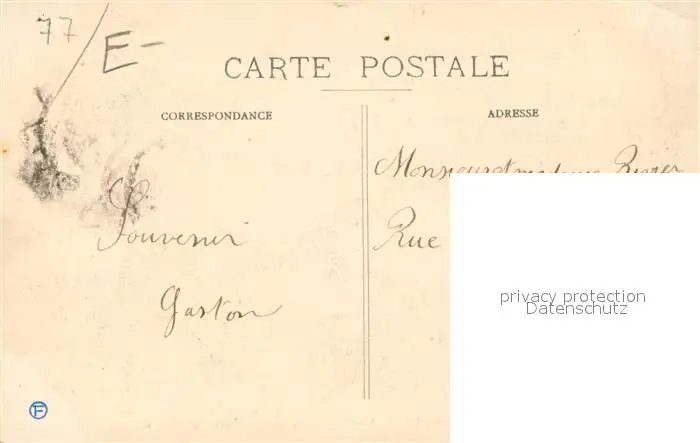 77
E-
CARTE POSTALE
CORRESPONDANCE
ADRESSE
Monsieur et madame
Rue
Souvenir
Gaston
privacy protection
Datenschutz